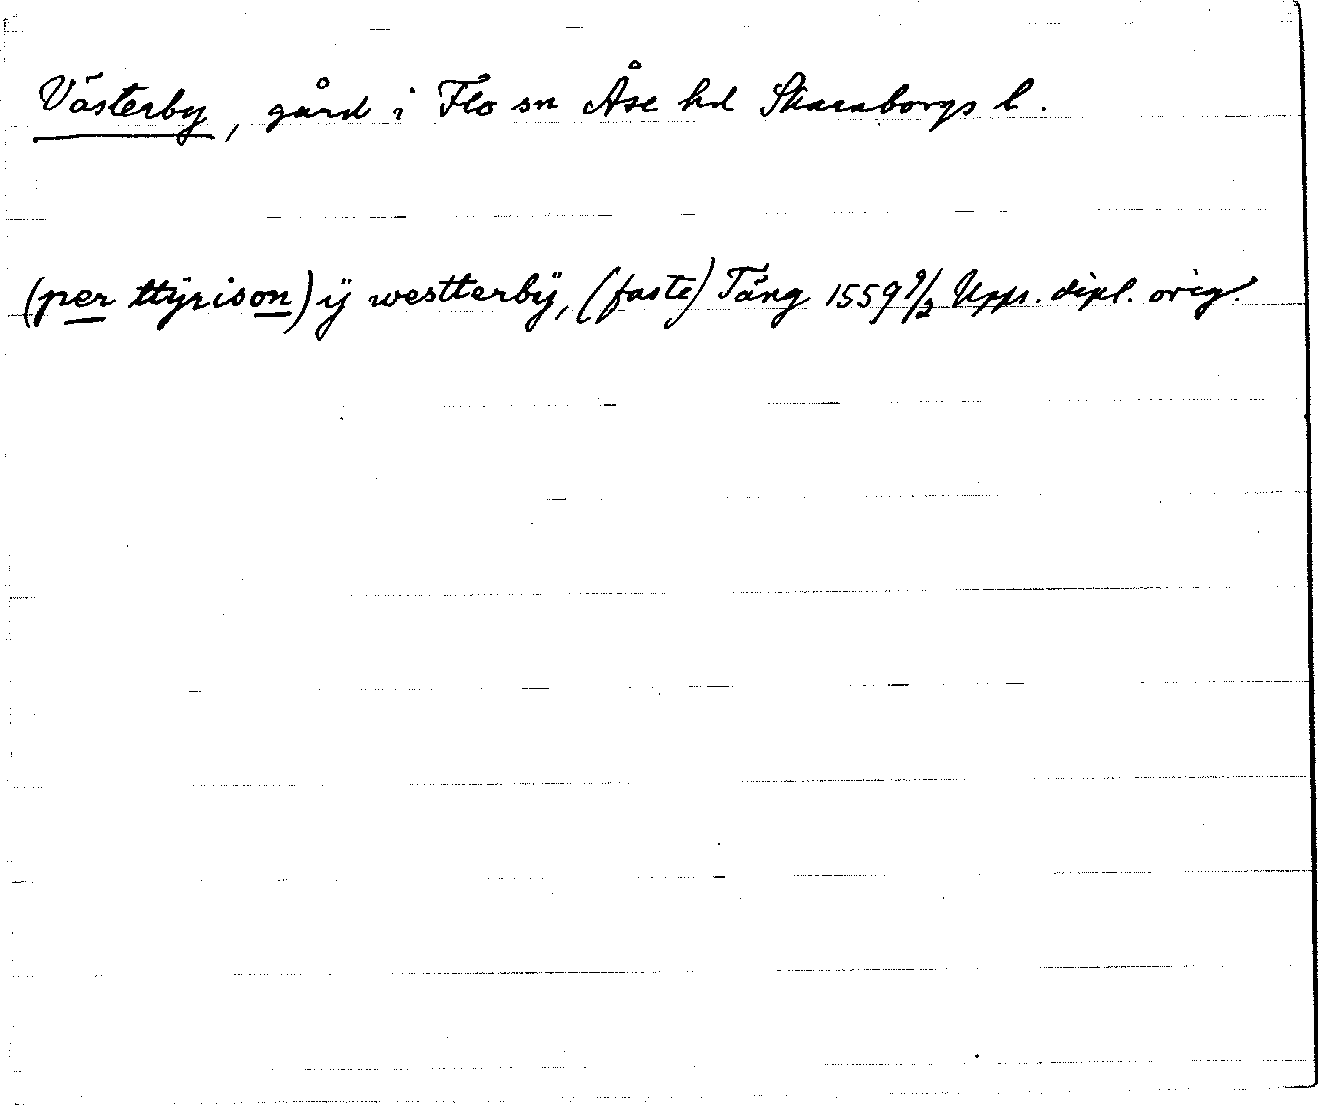 Västerby, gård i Flo sn Åse hd Skaraborgs l.
(per ttÿrison) ÿ westterbÿ, (faste) Tång 1559 9/2 Upps. dipl. orig.